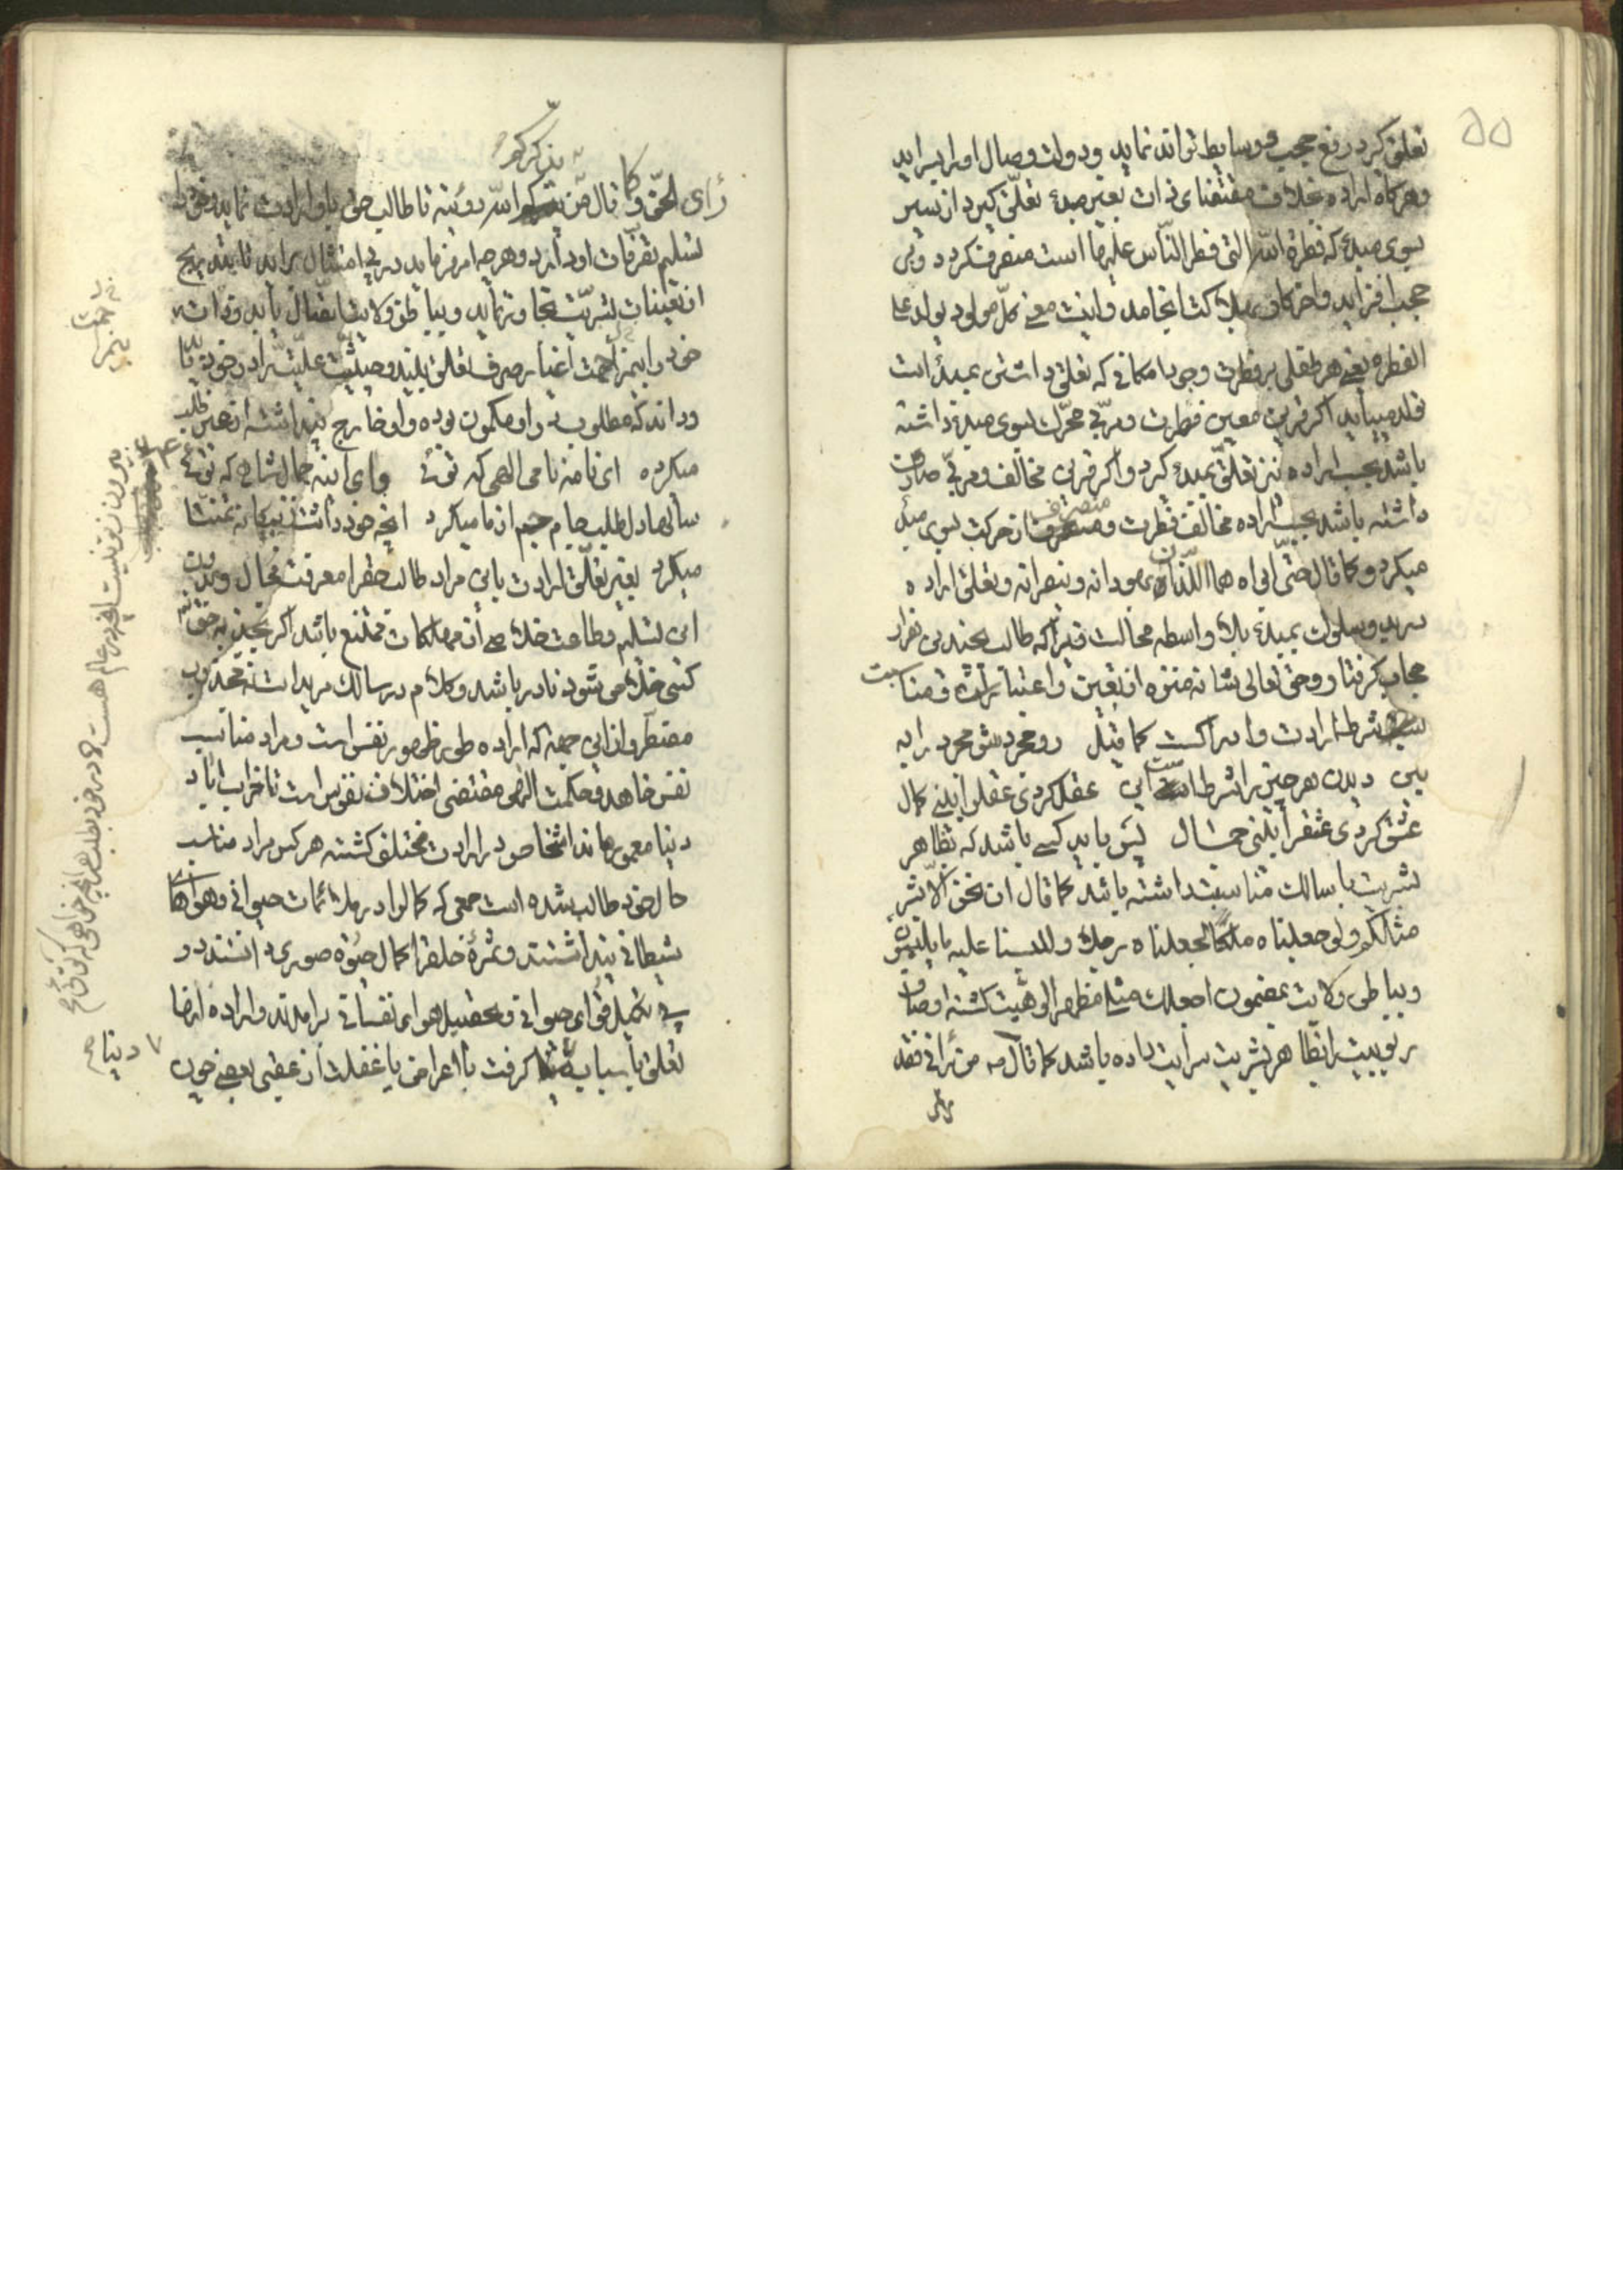 ۵۵
تعلق کیرد رفع حجب و وسایط تواند نماید و دولت وصال او را میسر اید
و هر کاه اراده بخلاف مقتضای ذات بغیر مبدء تعلّق کیرد از سیر
بسوی مبدء که فطرة اللّه التی فطر النّاس علیها است منصرف کردد و بر
حجب افزاید و اخر کار بهلاکت انجامد و اینست معنی کلّ مولود یولد علی
الفطره یعنی هر طفلی بر فطرت وجود امکانی که تعلق داشتن بمبدء است
تولد مییابد اکر قرین معین فطرت و مربّی محرّک بسوی مبدء داشته
باشد بحسب اراده نیز تعلّق بمبدء کیرد و اکر قرین مخالف و مربّی
داشته باشد بحسب اراده مخالف فطرت و منصرف از حرکت بسوی مبدء
میکردد کما قال حتّی ابواه هما اللّذان یهودانه و ینصرانه و تعلق اراده
و سلوک بمبدء بلا واسطه محالست زیرا که طالب بچندین هزار
حجاب کرفتار و حق تعالی شانه منزه از تعین و اعتبار است و مناسبت
شرط ارادت و ادراکست کما قیل رو مجرد شو مجرد را ببین
دیدن هر چیز را شرطست این عقل کردی عقل را بینی کمال
عشق کردی عشق را بینی جمال پس باید کسی باشد که بظاهر
بشریت با سالک مناسبت داشته باشد کما قال ان نحن الّا بشر
مثلکم ولو جعلناه ملکا لجعلناه رجلا و للبسنا علیهم ما یلبسون
و بباطن ولایت بمضمون اجعلک مثلی مظهر الوهیت کشته اوصاف
ربوبیت را بظاهر بشریت سرایت داده باشد کما قال ص من رآنی فقد
رای
رای الحقّ و کما قال من یذکرکم اللّه رؤیته تا طالب حق باو ارادت نماید و خود را
تسلیم تصرفات او دارد و هر چه امر فرماید در پی امتثال براید تا بتدریج
از تعینات بشریّت تجاوز نماید و بباطن ولایت اتصال یابد و ذات
خود را بی مزاحمت اغیار صرف تعلق بیند و حیثیّت علیّت را در خود
و داند که مطلوب در او مکمون بوده و او خارج پنداشته از غیر طلب
میکرده ای نامه نامی الهی که توئی وای اینه جمال شاهی که توئی
سالها دل طلب جام جم از ما میکرد انچه خود داشت ز بیکانه تمنّا
میکرد بغیر تعلّق ارادت باین مراد طالب حق را معرفت محال و بدون
این تسلیم و طاعت خلاصی از مهلکات ممتنع باشد اکر بجذبه حق
کسی خلاص شود نادر باشد و کلام در سالک مرید است نه مجذوب
مضطر و از این جهة که اراده طی ظهور نفس است و مراد مناسب
نفس خاهد و حکمت الهی مقتضی اختلاف نفوس است تا خراب اباد
دنیا معمور ماند اشخاص در ارادت مختلف کشته هر کس مراد مناسب
حال خود طالب شده است جمعی که کمال را در ملائمات حیوانی و هواهای
شیطانی پنداشتند و ثمرهٔ خلقت را کمال حیوة صوری دانستند در
پی تکمیل قوای حیوانی و تحصیل هوای نفسانی برامدند و اراده انها
تعلق باسباب دنیا کرفت با اعراض یا غفلت از عقبی یعنی چون
بیرون ز تو نیست انچه در عالم هست
در خود بطلب هر انچه خواهی که توئی
دنیا